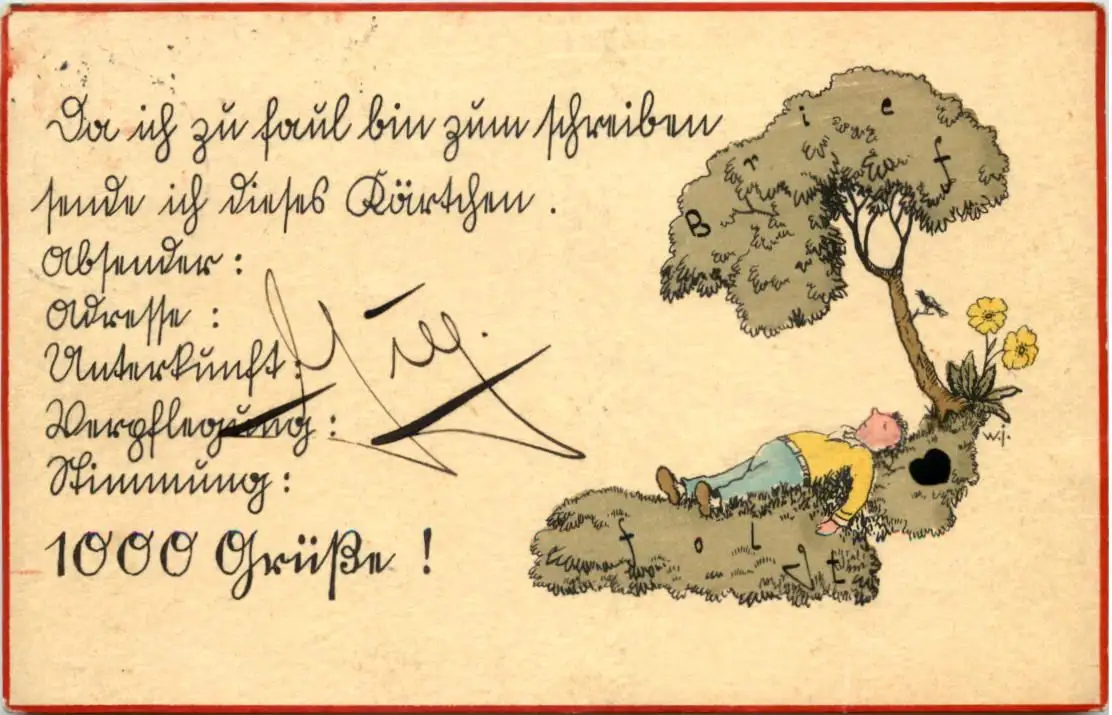 Da ich zu faul bin zum schreiben
sende ich dieses Kärtchen.
Absender:
Adresse:
Unterkunft:
Verpflegung:
Stimmung:
1000 Grüße!
Brief
w.j.
folgt